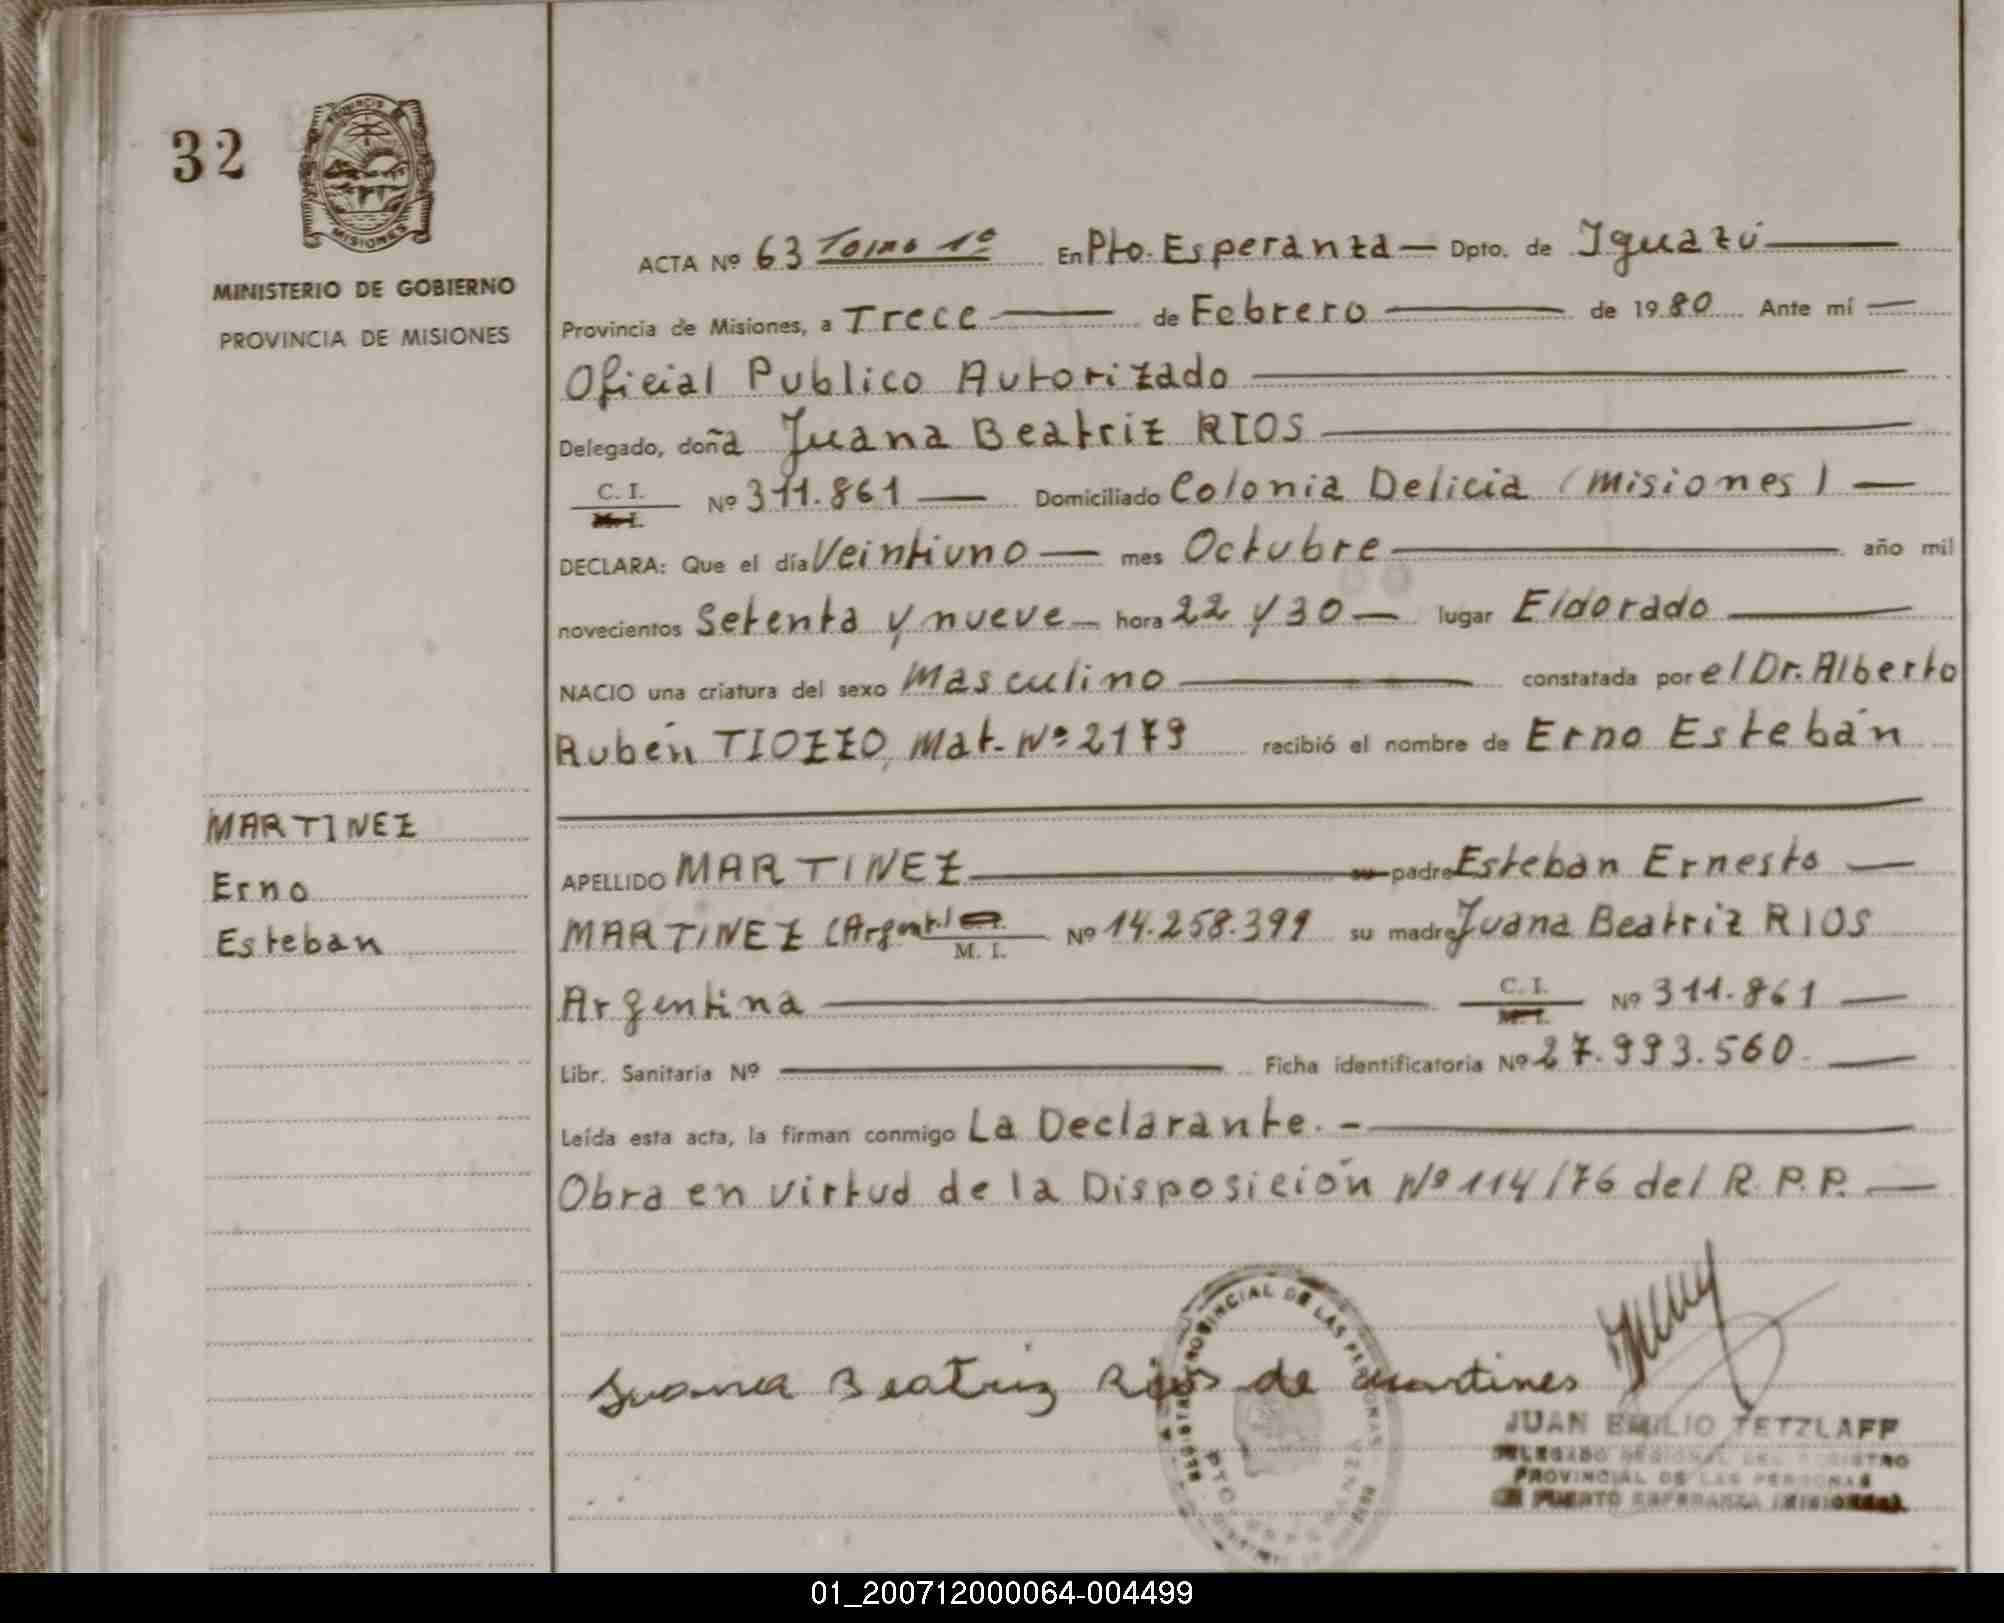 32
PROVINCIA
MISIONES
MINISTERIO DE GOBIERNO
PROVINCIA DE MISIONES
ACTA Nº 63 Tomo 1º En Pto. Esperanza — Dpto. de Iguazú
Provincia de Misiones, a Trece — de Febrero — de 1980 Ante mí —
Oficial Publico Autorizado —
Delegado, doña Juana Beatriz RIOS —
C. I. M. I. Nº 311.861 — Domiciliado Colonia Delicia (Misiones) —
DECLARA: Que el día Veintiuno — mes Octubre — año mil
novecientos Setenta y nueve — hora 22 y 30 — lugar Eldorado —
NACIO una criatura del sexo Masculino — constatada por el Dr. Alberto
Rubén TIOZZO, Mat. Nº 2179 recibió el nombre de Erno Estebán
MARTINEZ
Erno
Esteban
APELLIDO MARTINEZ — su padre Esteban Ernesto —
MARTINEZ (Argent.) C. I. M. I. Nº 14.258.399 su madre Juana Beatriz RIOS
Argentina — C. I. M. I. Nº 311.861 —
Libr. Sanitaria Nº — Ficha identificatoria Nº 27.993.560. —
Leída esta acta, la firman conmigo La Declarante. —
Obra en virtud de la Disposición Nº 114/76 del R. P. P. —
Juana Beatriz Rios de martines
REGISTRO PROVINCIAL DE LAS PERSONAS
PTO.
JUAN EMILIO TETZLAFF
DELEGADO REGIONAL DEL REGISTRO
PROVINCIAL DE LAS PERSONAS
PUERTO ESPERANZA (MISIONES)
01_200712000064-004499